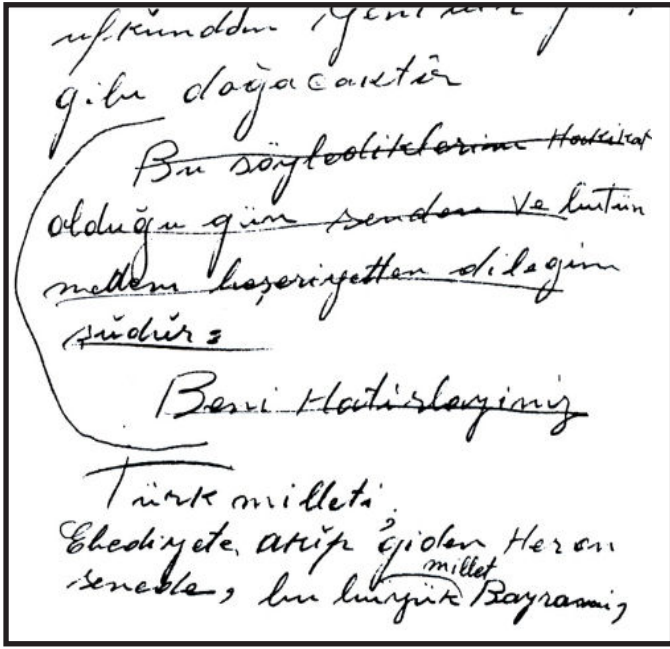 ufkundan yeni
gibi doğacaktır
Bu söylediklerim Hakikat
olduğu gün senden ve bütün
medeni beşeriyetten dileğim
şudur:
Beni Hatırlayınız
Türk milleti,
Ebediyete akıp giden Her on
senede, bu büyük millet Bayramını,